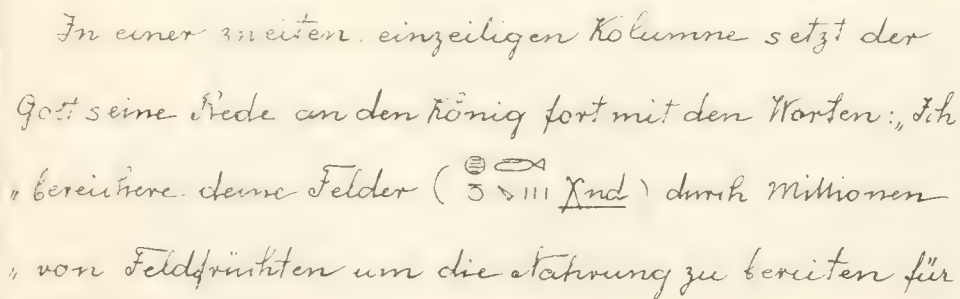 In einer zweiten einzeiligen Kolumne setzt der
Gott seine Rede an den König fort mit den Worten: „Ich
„ bereichere deine Felder ( Xnd ) durch Millionen
„ von Feldfrüchten um die Nahrung zu bereiten für